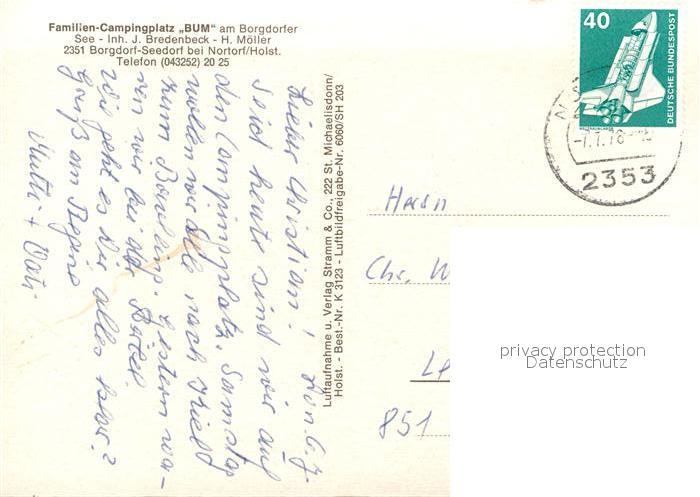 Familien-Campingplatz „BUM“ am Borgdorfer
See - Inh. J. Bredenbeck - H. Möller
2351 Borgdorf-Seedorf bei Nortorf/Holst.
Telefon (043252) 20 25
Lieber Christian!
Seid heute sind wir auf
den Campingplatz. Samstag
wollen wir alle nach Kiel
zum Bowling. Gestern wa-
ren wir bei der
Wie geht es Dir alles klar?
Gruß an Regine
Mutti + Vati
Luftaufnahme u. Verlag Stramm & Co., 222 St. Michaelisdonn/
Holst. - Best.-Nr. K 3123 - Luftbildfreigabe-Nr. 6060/SH 203
40
DEUTSCHE BUNDESPOST
-7.7.78
2353
Herrn
Chr. W
851
privacy protection
Datenschutz